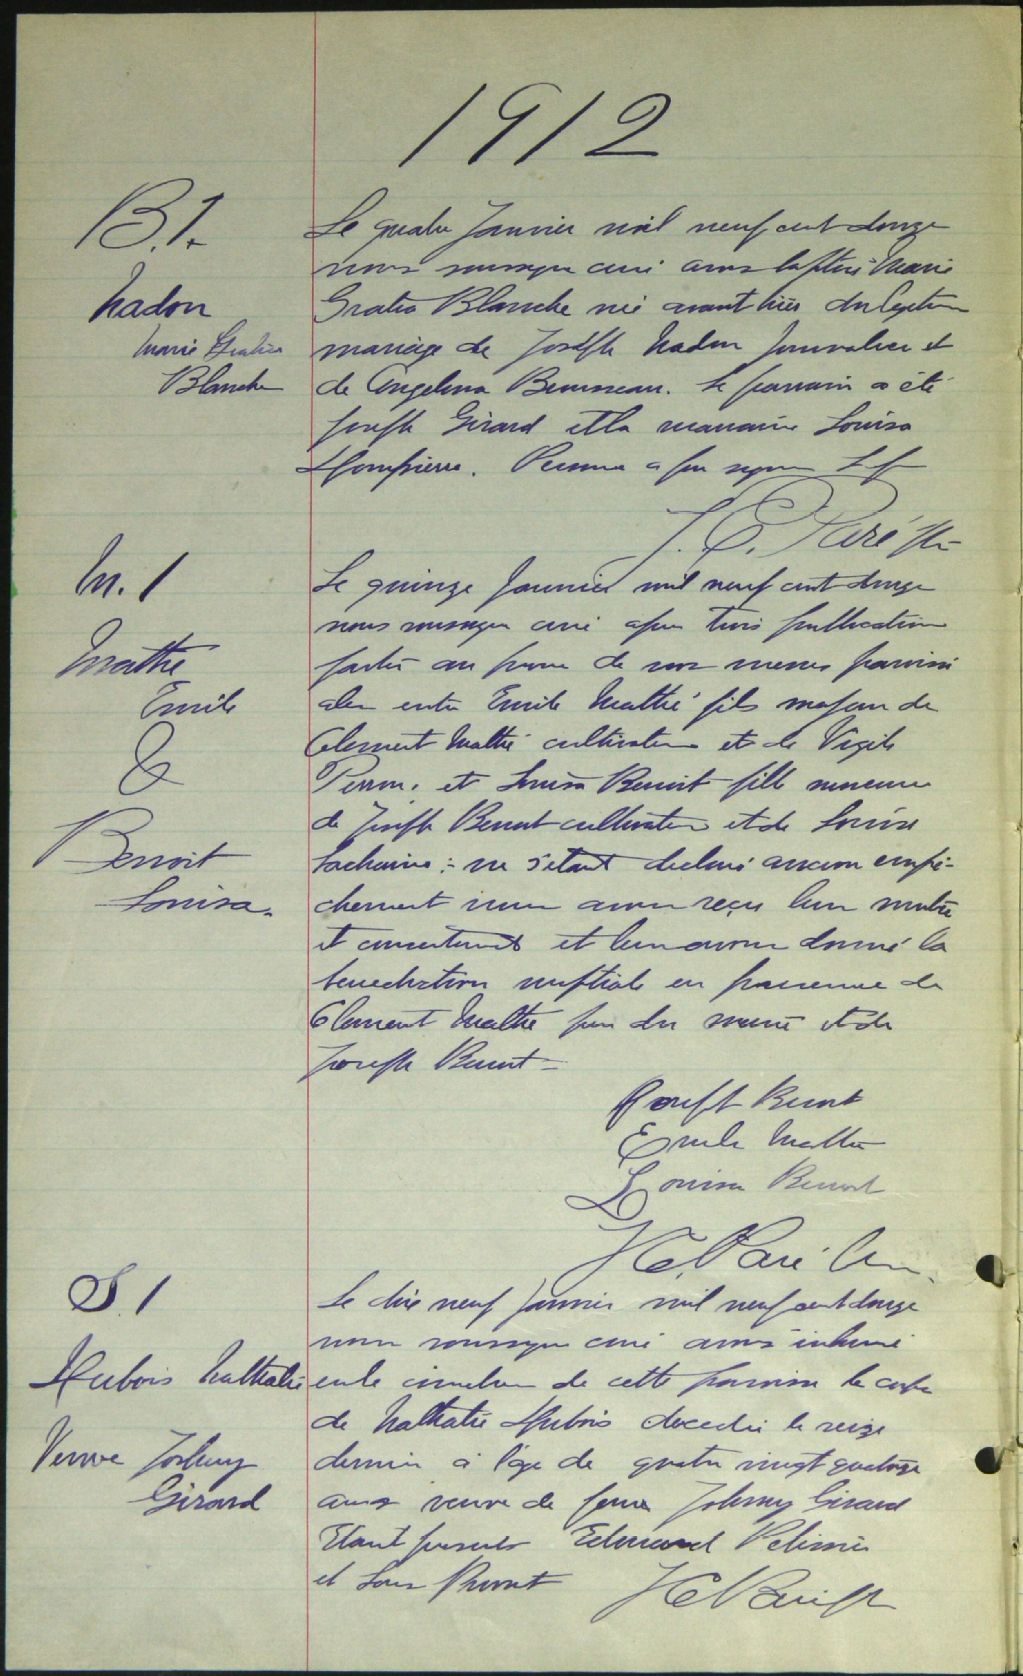 1912
B.1.
Nadon
Marie Gratia
Blanche
Le quatre Janvier mil neuf cent douze
nous soussigné curé avons baptisé Marie
Gratia Blanche née avant hier du légitime
mariage de Joseph Nadon Journalier et
de Angelina Brunneau. Le parrain a été
Joseph Girard et la marraine Louisa
Dompierre. Personne a su signer
J. E. Paré Ptr
M. 1
Mathé
Emile
&
Benoit
Louisa.
Le quinze Janvier mil neuf cent douze
nous soussigné curé après trois publications
faites au prône de nos messes paroissi
ales entre Emile Mathé fils majeur de
Clement Mathé cultivateur et de Vigile
Perron. et Louisa Benoit fille mineure
de Joseph Benoit cultivateur et de Louise
: ne s'étant déclaré aucun empê-
chement nous avons reçu leur mutuel
et consentement et leur avons donné la
benediction nuptiale en presence de
Clement Mathé père du marié et de
Joseph Benoit -
Joseph Benoit
Emile Mathé
Louisa Benoit
J E Paré
S 1
Dubois Nathalie
Veuve Johnny
Girard
Le dix neuf Janvier mil neuf cent douze
nous soussigné curé avons inhumé
en le cimetière de cette paroisse le corps
de Nathalie Dubois décédée le seize
dernier à l'âge de quatre vingt quatorze
ans veuve de feu Johnny Girard
Etant présents Edouard Pelissier
et Louis Benoit J E Paré Ptr